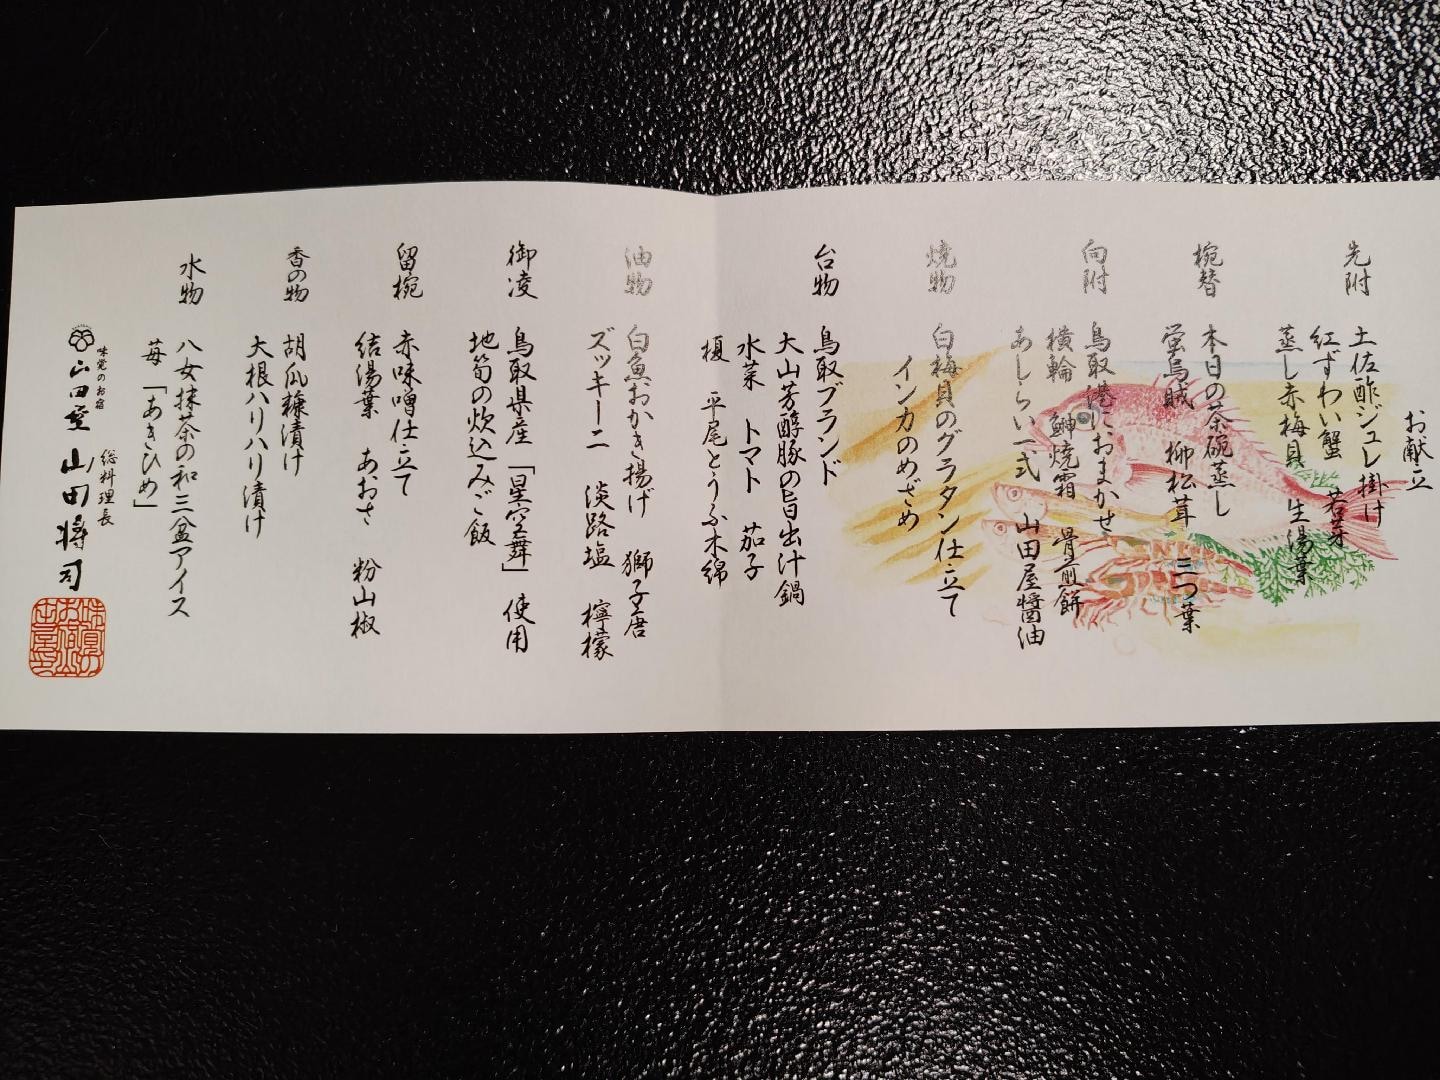 お献立
先附
土佐酢ジュレ掛け
紅ずわい蟹 若芽
蒸し赤梅貝 生湯葉
椀替
本日の茶碗蒸し
蛍烏賊 柳松茸 三つ葉
向附
鳥取港におまかせ
横輪 鰤焼霜 骨煎餅
あしらい一式 山田屋醤油
焼物
白梅貝のグラタン仕立て
インカのめざめ
台物
鳥取ブランド
大山芳醇豚の旨出汁鍋
水菜 トマト 茄子
榎 平尾とうふ木綿
油物
白魚おかき揚げ 獅子唐
ズッキーニ 淡路塩 檸檬
御凌
鳥取県産「星空舞」使用
地筍の炊込みご飯
留椀
赤味噌仕立て
結湯葉 あおさ 粉山椒
香の物
胡瓜糠漬け
大根ハリハリ漬け
水物
八女抹茶の和三盆アイス
苺「あきひめ」
味覚のお宿
山田屋
総料理長
山田将司